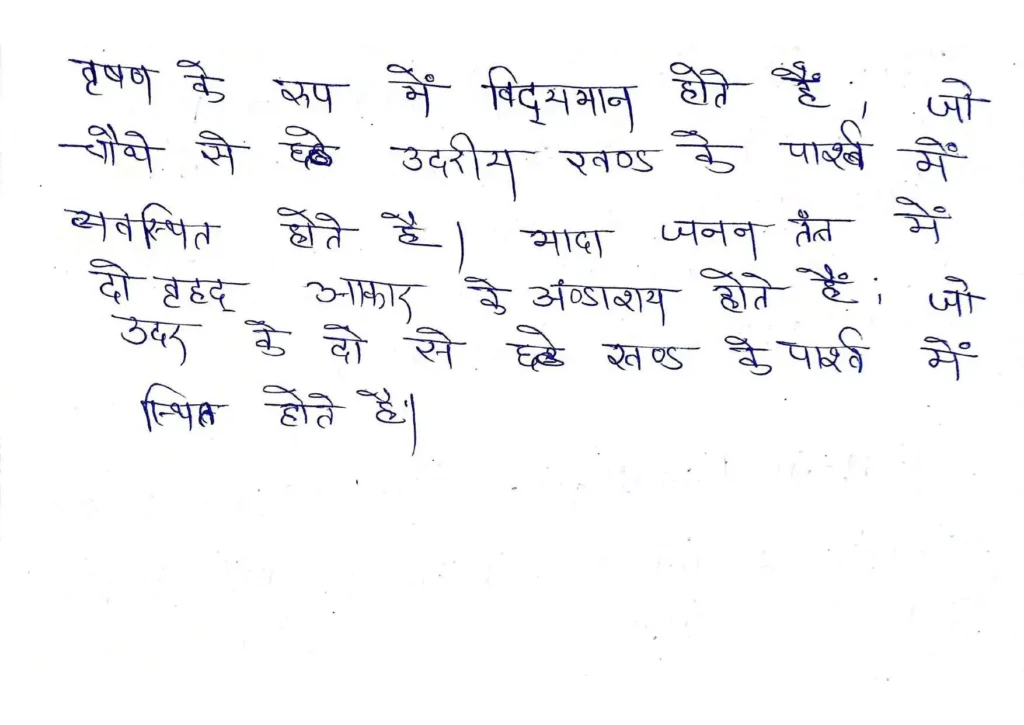 वृषण के रुप में विद्यमान होते हैं, जो
चौथे से छठे उदरीय खण्ड के पार्श्व में
व्यवस्थित होते है। मादा जनन तंत्र में
दो वृहद् आकार के अण्डाशय होते हैं; जो
उदर के दो से छठे खण्ड के पार्श्व में
स्थित होते है।